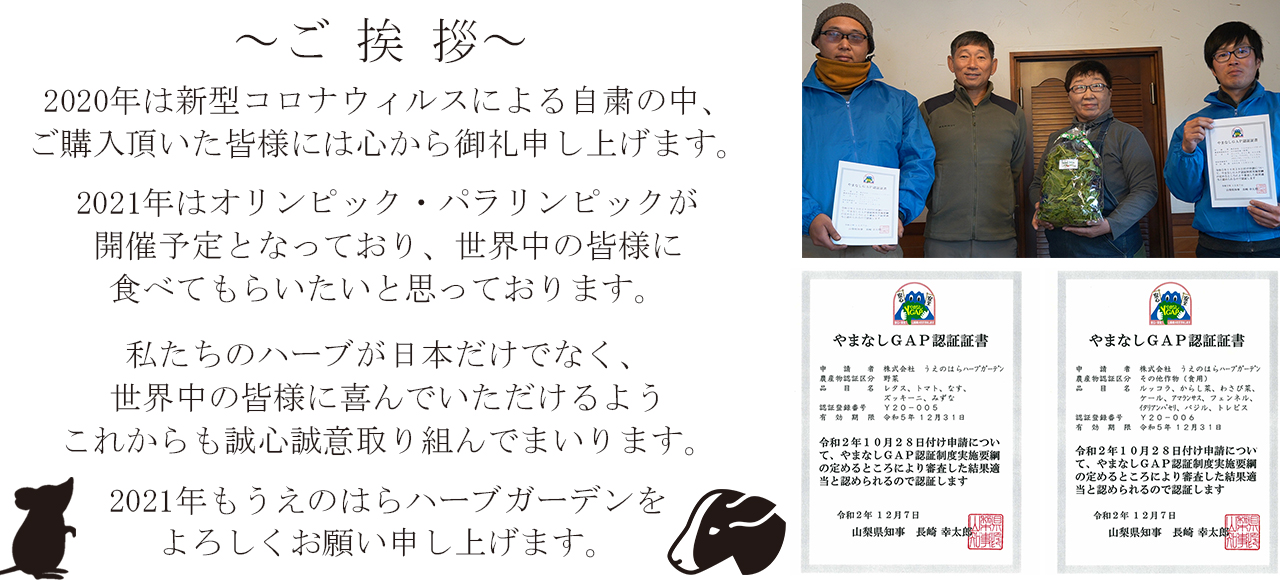 ～ご挨拶～
2020年は新型コロナウィルスによる自粛の中、
ご購入頂いた皆様には心から御礼申し上げます。
2021年はオリンピック・パラリンピックが
開催予定となっており、世界中の皆様に
食べてもらいたいと思っております。
私たちのハーブが日本だけでなく、
世界中の皆様に喜んでいただけるよう
これからも誠心誠意取り組んでまいります。
2021年もうえのはらハーブガーデンを
よろしくお願い申し上げます。
やまなしGAP認証証書
やまなしGAP認証証書
やまなしGAP認証証書
申請者 株式会社 うえのはらハーブガーデン
農産物認証区分 野菜
品目名 レタス、トマト、なす、
ズッキーニ、みずな
認証登録番号 Y20-005
有効期限 令和5年12月31日
令和2年10月28日付け申請につい
て、やまなしGAP認証制度実施要綱
の定めるところにより審査した結果適
当と認められるので認証します
令和2年12月7日
山梨県知事 長崎 幸太郎
やまなしGAP認証証書
申請者 株式会社 うえのはらハーブガーデン
農産物認証区分 その他作物(食用)
品目名 ルッコラ、からし菜、わさび菜、
ケール、アマランサス、フェンネル、
イタリアンパセリ、バジル、トレビス
認証登録番号 Y20-006
有効期限 令和5年12月31日
令和2年10月28日付け申請につい
て、やまなしGAP認証制度実施要綱
の定めるところにより審査した結果適
当と認められるので認証します
令和2年12月7日
山梨県知事 長崎 幸太郎